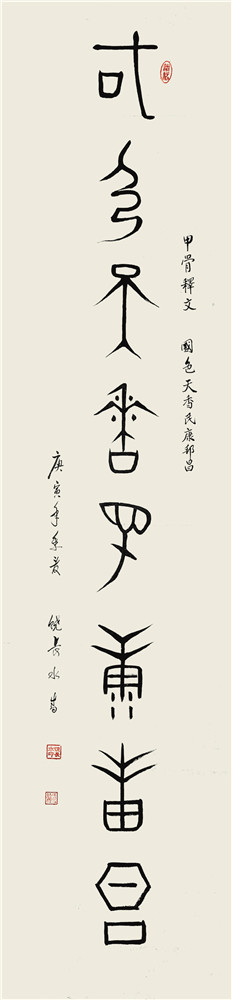 國色天香民康邦昌
甲骨釋文 國色天香民康邦昌
庚寅年季夏 饒長水書